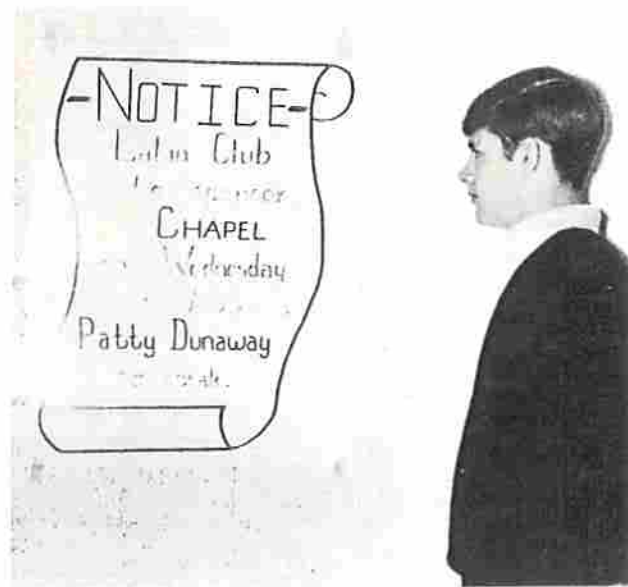 -NOTICE-
Latin Club
sponsor
CHAPEL
Wednesday
Patty Dunaway